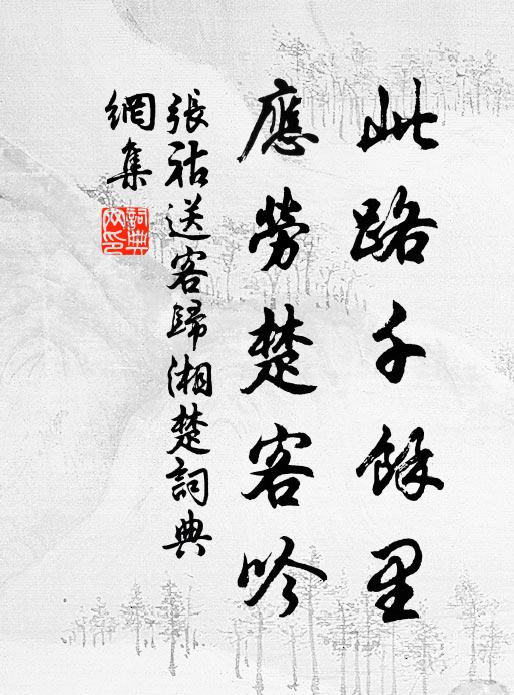 此路千餘里
應勞楚客吟
張祜送客歸湘楚詞典
網集
詞典
网印